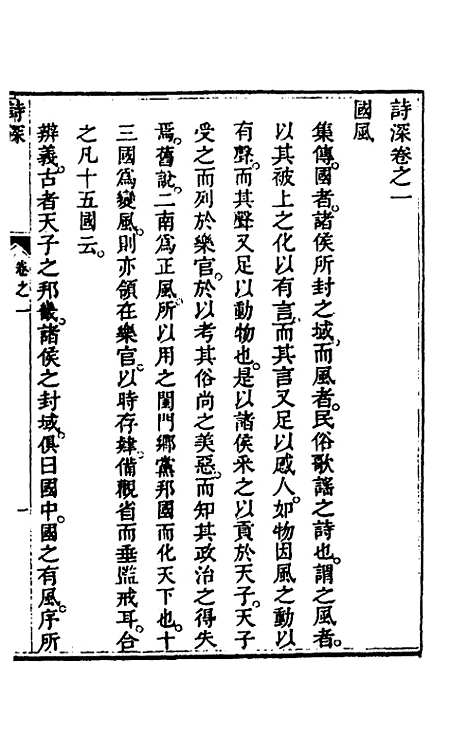 詩深卷之一
國風
集傳。國者。諸侯所封之域。而風者。民俗歌謠之詩也。謂之風者。
以其被上之化以有言。而其言又足以感人。如物因風之動以
有聲。而其聲又足以動物也。是以諸侯采之以貢於天子。天子
受之而列於樂官。於以考其俗尚之美惡。而知其政治之得失
焉。舊說。二南爲正風。所以用之閨門鄉黨邦國而化天下也。十
三國爲變風。則亦領在樂官。以時存肄。備觀省而垂監戒耳。合
之凡十五國云。
辨義。古者天子之邦畿。諸侯之封域。俱曰國中。國之有風。序所
詩深
卷之一
一